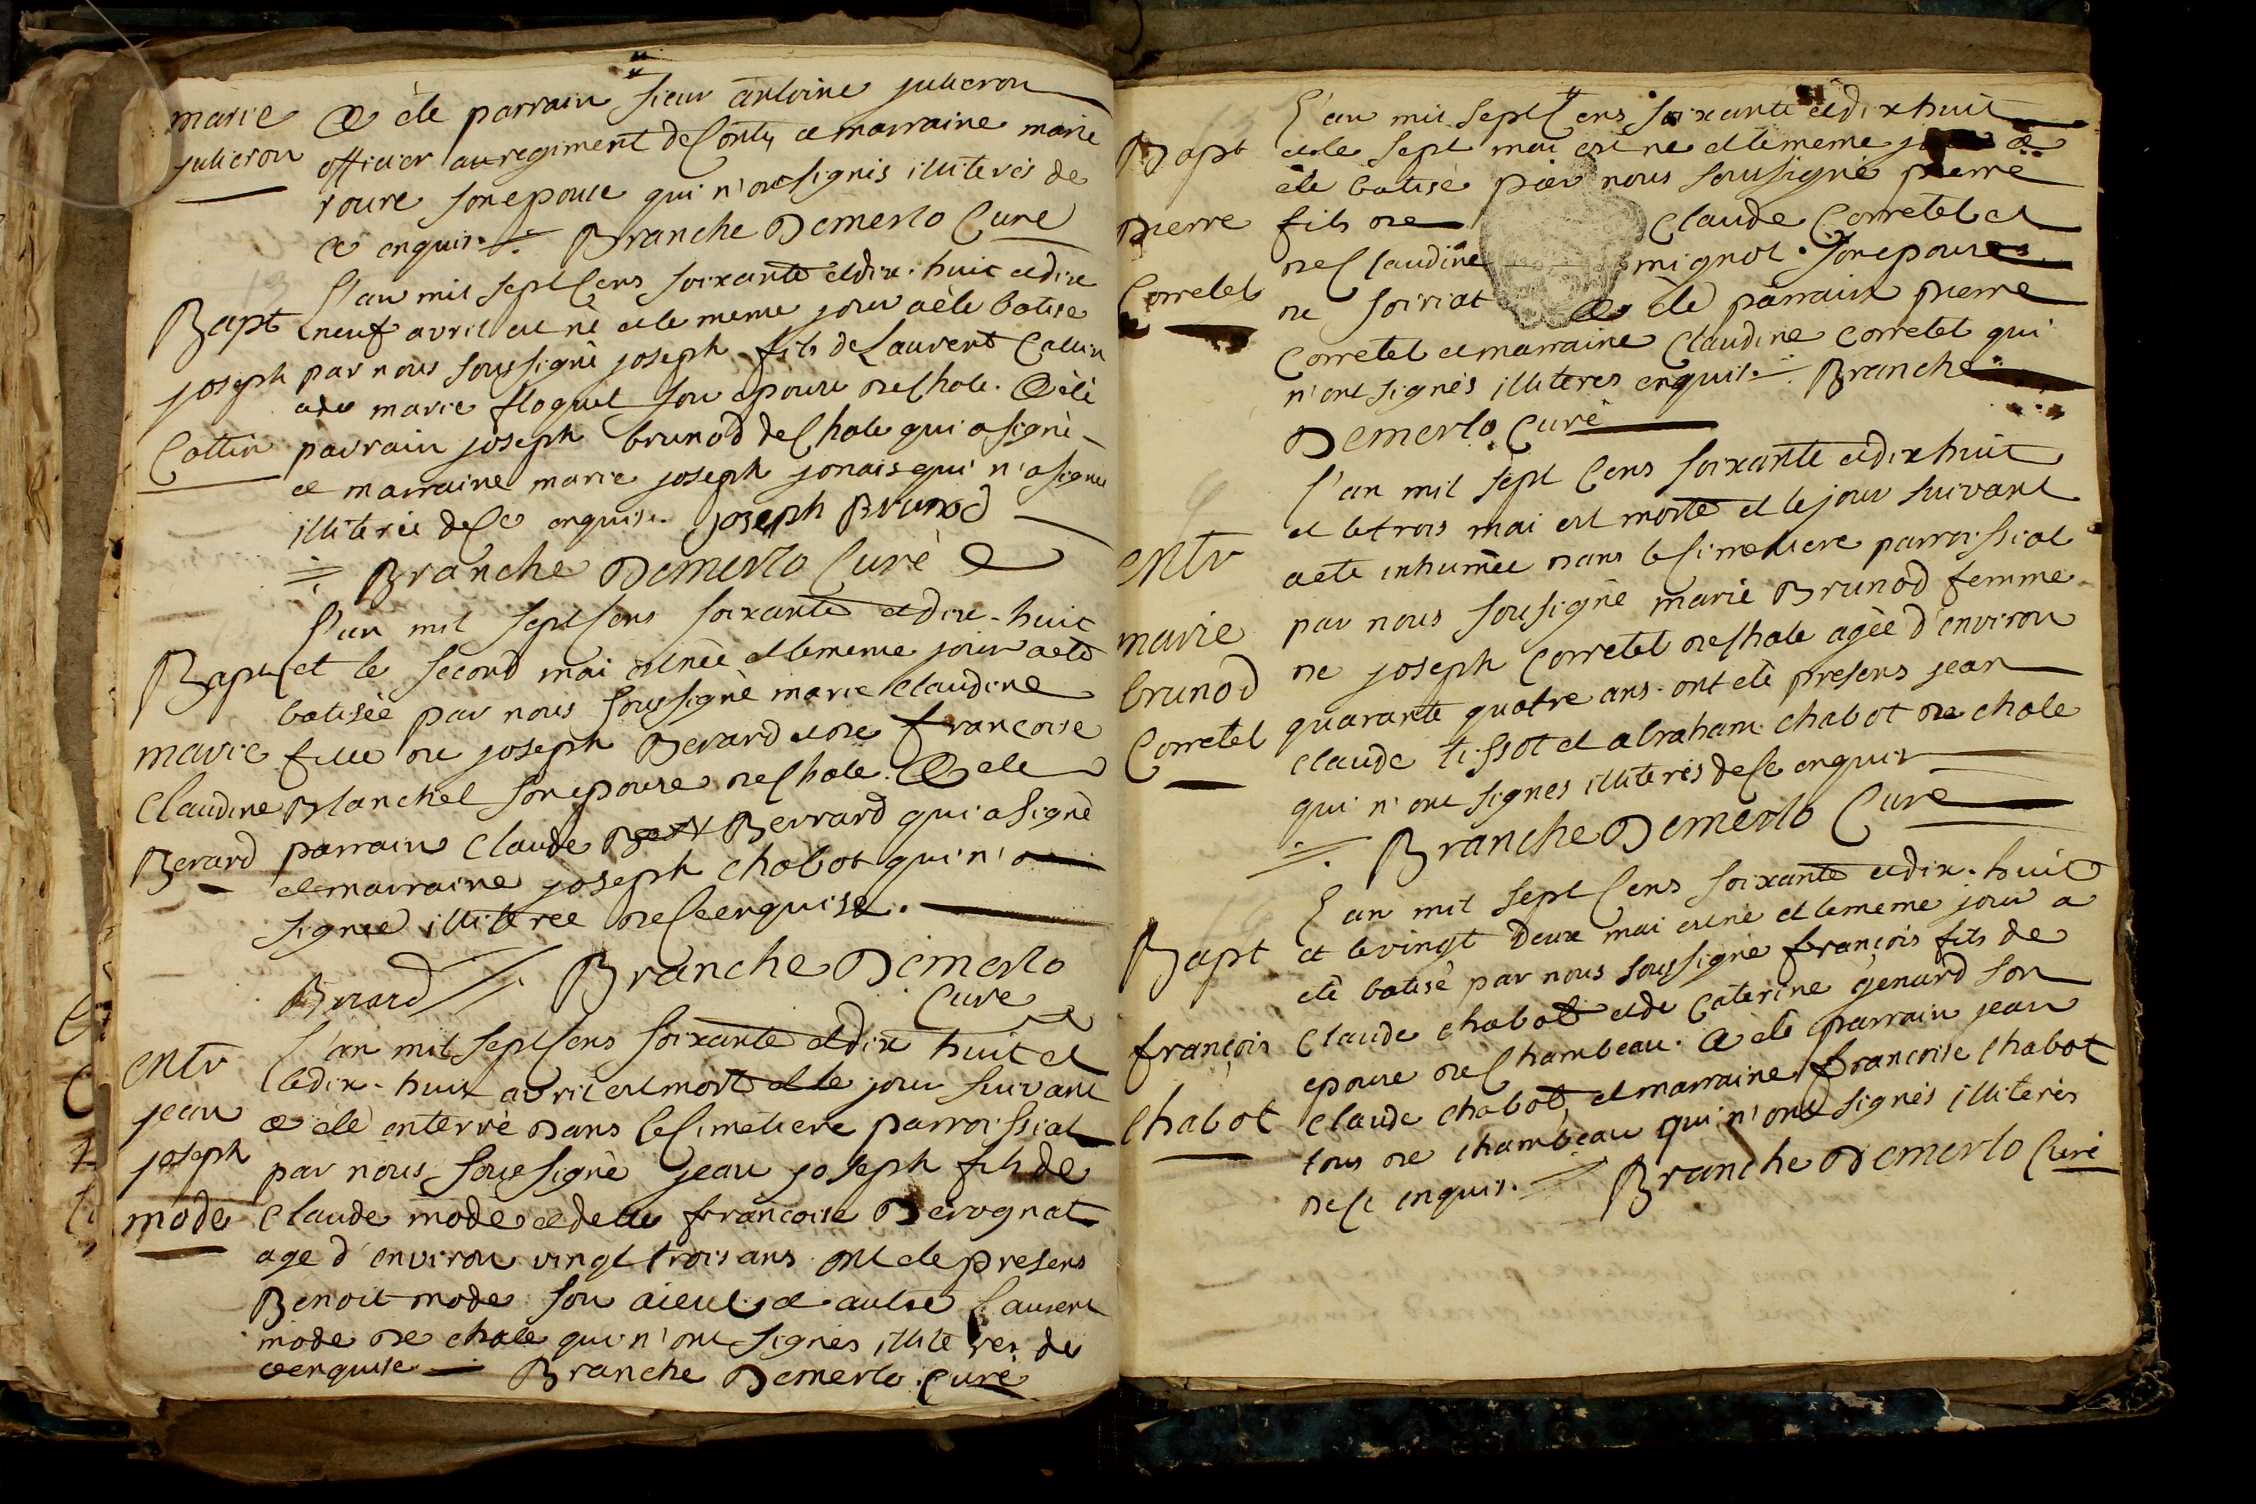 marie
julieron
a été parrain sieur antoine julieron
officier au regiment de Conty et marraine marie
roure son epouse qui n'ont signés illiterés de
ce enquis. Branche Demerlo Curé
Bapt
joseph
Cattin
L'an mil sept Cens soixante et dix-huit et dix
neuf avril est né et le meme jour a été batisé
par nous soussigné joseph fils de Laurent Cattin
et de marie floquet son epouse de Chale. a été
parrain joseph brunod de Chale qui a signé
et marraine marie joseph jonais qui n'a signé
illiterée de Ce enquise. joseph Brunod
Branche Demerlo Curé
Bapt
marie
Claudine
Berard
L'an mil sept Cens soixante et dix-huit
et le second mai est née et le meme jour a eté
batisée par nous soussigné marie Claudine
fille de joseph Berard et de francoise
Blanchet son epouse de Chale. a été
parrain Claude Berrard qui a signé
et marraine joseph chabot qui n'a
signée illiterée de Ce enquise.
Berard Branche Demerlo
Curé
Entr
jean
joseph
mode
L'an mil sept Cens soixante et dix huit et
le dix-huit avril est mort et le jour suivant
a eté enterré dans le Cimetiere parroissial
par nous soussigné jean joseph fils de
Claude mode et de francoise Derognat
age d'environ vingt trois ans ont eté presens
Benoit mode son aieul et autre Laurent
mode de chale qui n'ont signés illiterés de
ce enquise Branche Demerlo. Curé
Bapt
pierre
Corretel
L'an mil sept Cens soixante et dix huit
et le sept mai est né et le meme jour a
été batisé par nous soussigné pierre
fils de Claude Corretel et
de Claudine mignot son epouse
de soiriat a été parrain pierre
Corretel et marraine Claudine Corretel qui
n'ont signés illiteres enquis. Branche
Demerlo Curé
Entr
marie
brunod
Corretel
L'an mil sept Cens soixante et dix huit
et le trois mai est morte et le jour suivant
a eté inhumée dans le Cimetiere parroissial
par nous sousigné marie Brunod femme
de joseph Corretel de Chale agée d'environ
quarante quatre ans. ont eté presens jean
claude tissot et abraham chabot de chale
qui n'ont signes illiterés de Ce enquis
Branche Demerlo Curé
Bapt
françois
Chabot
L'an mil sept Cens soixante et dix-huit
et le vingt deux mai est né et le meme jour a
été batisé par nous soussigné françois fils de
Claude chabot et de Caterine genard son
epouse de Chambeau. a été parrain jean
Claude chabot, et marraine francoise chabot
tous de chambeau qui n'ont signés illiterés
de Ce enquis. Branche Demerlo Curé